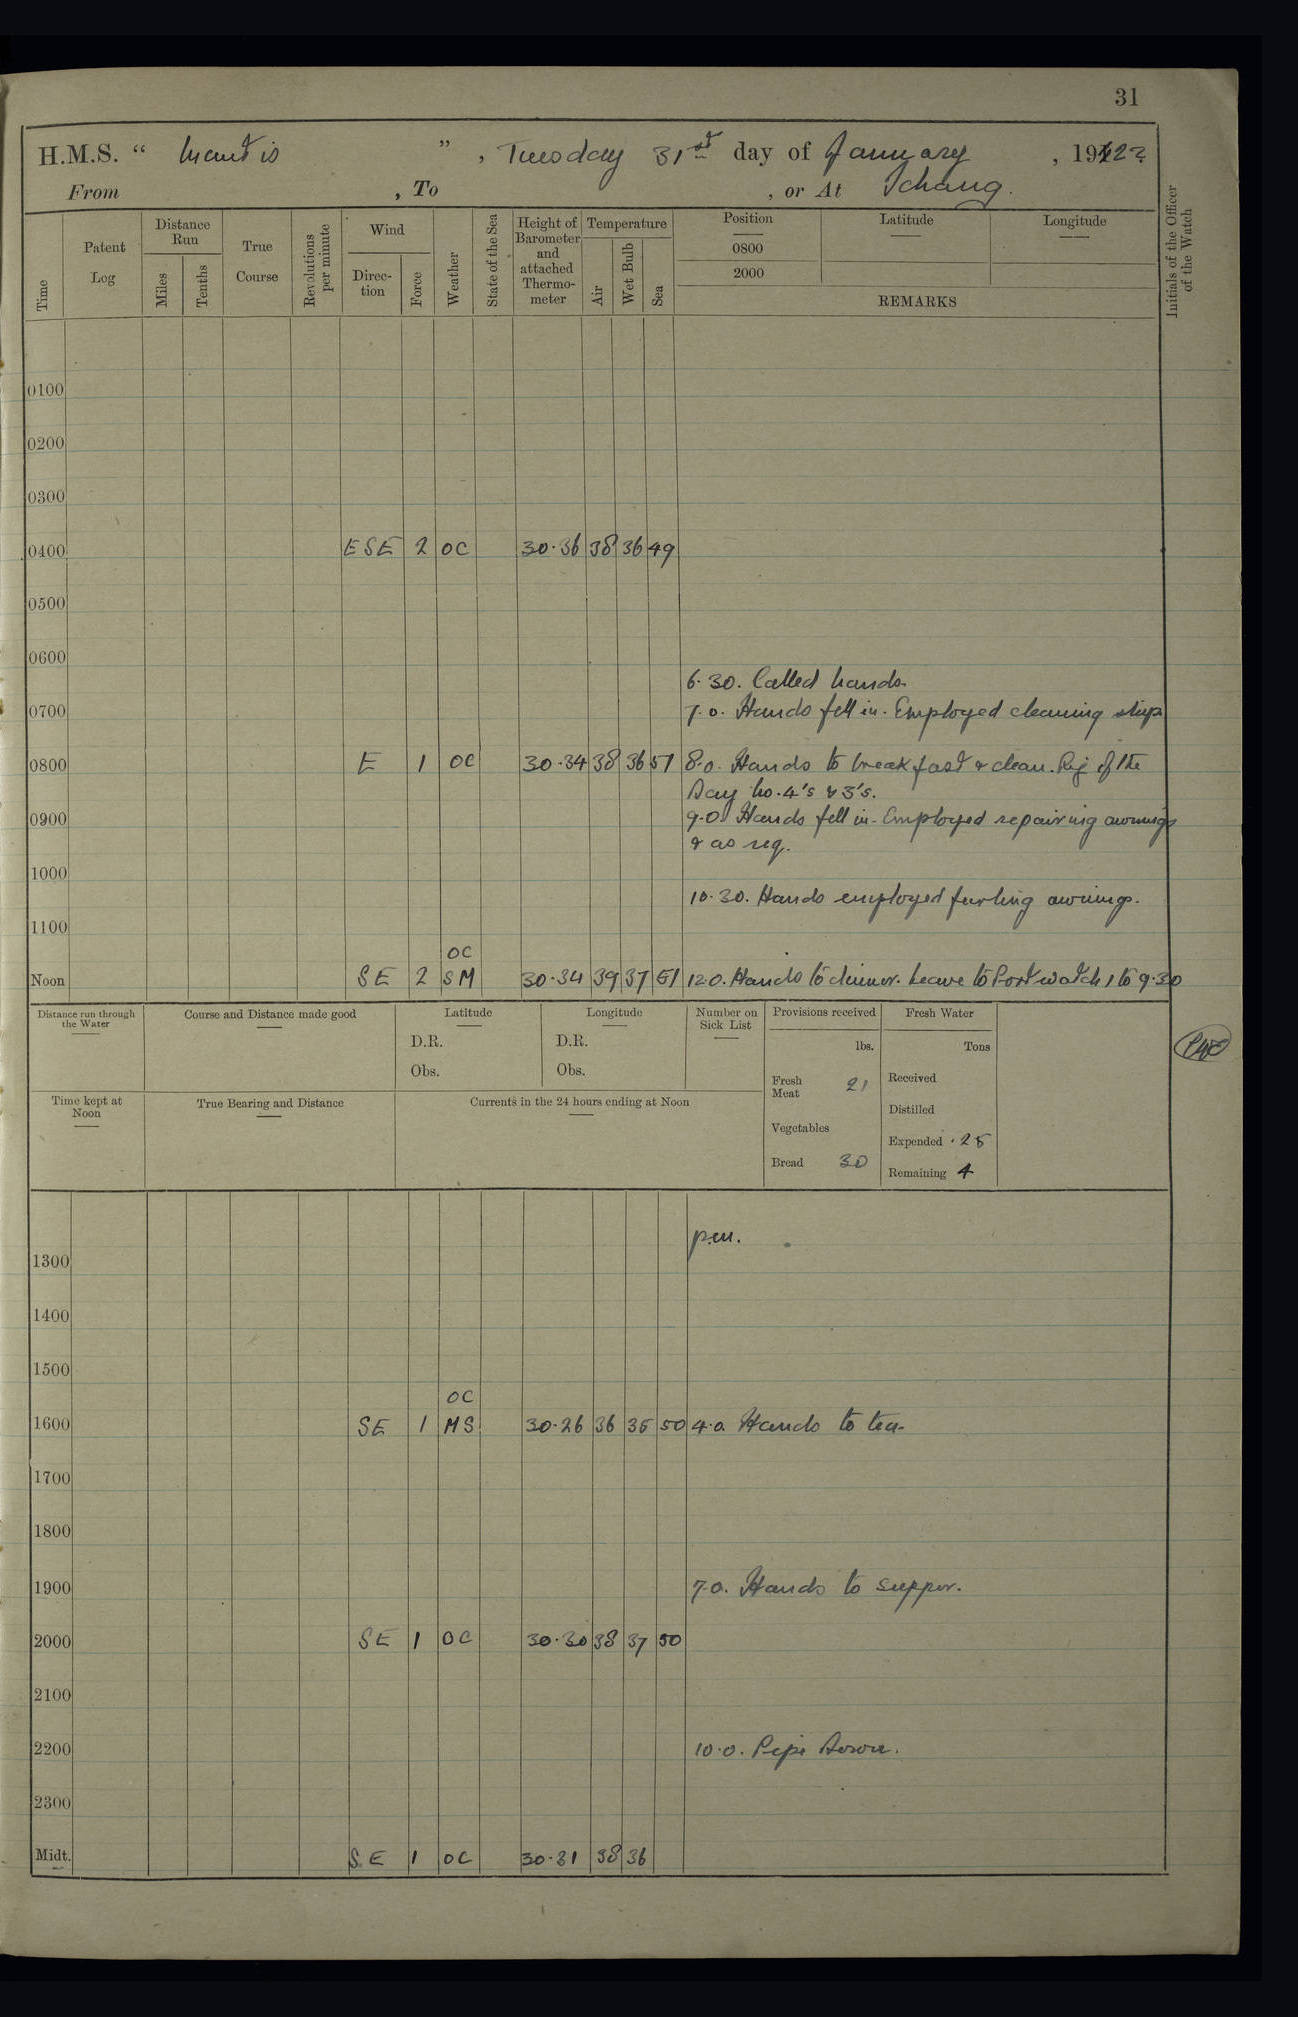 31
H.M.S. “ Mantis ” , Tuesday 31st day of January , 1922
From , To , or At Ichang.
Time
Patent Log
Distance Run
Miles
Tenths
True Course
Revolutions per minute
Wind
Direc-tion
Force
Weather
State of the Sea
Height of Barometer and attached Thermo-meter
Temperature
Air
Wet Bulb
Sea
Position
Latitude
Longitude
0800
2000
REMARKS
Initials of the Officer of the Watch
0100
0200
0300
0400 ESE 2 OC 30·36 38 36 49
0500
0600
6·30. Called hands.
0700 7·0. Hands fell in. Employed cleaning ship
0800 E 1 OC 30·34 38 36 51 8·0. Hands to breakfast & clean. Rig of the
Day No. 4's & 3's.
0900 9·0. Hands fell in. Employed repairing awnings
& as req.
1000
10·30. Hands employed furling awnings.
1100
OC
Noon SE 2 SM 30·34 39 37 51 12·0. Hands to dinner. Leave to Port watch 1 to 9·30
Distance run through the Water
Course and Distance made good
Latitude
D.R.
Obs.
Longitude
D.R.
Obs.
Number on Sick List
Provisions received
lbs.
Fresh Meat 21
Vegetables
Bread 30
Fresh Water
Tons
Received
Distilled
Expended ·25
Remaining 4
Time kept at Noon
True Bearing and Distance
Currents in the 24 hours ending at Noon
p.m.
1300
1400
1500
OC
1600 SE 1 MS 30·26 36 35 50 4·0. Hands to tea.
1700
1800
1900 7·0. Hands to supper.
2000 SE 1 OC 30·30 38 37 50
2100
2200 10·0. Pipe Down.
2300
Midt. SE 1 OC 30·31 38 36